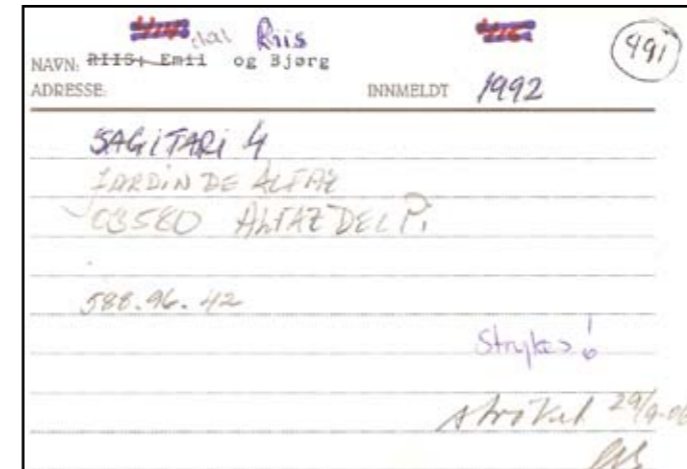 Riis
491
NAVN: RIIS, Emil og Bjørg
ADRESSE: INNMELDT 1992
SAGITARI 4
JARDIN DE ALFAZ
03580 ALFAZ DEL Pi
588.96.42
Strykes!
strøket 29/9-06